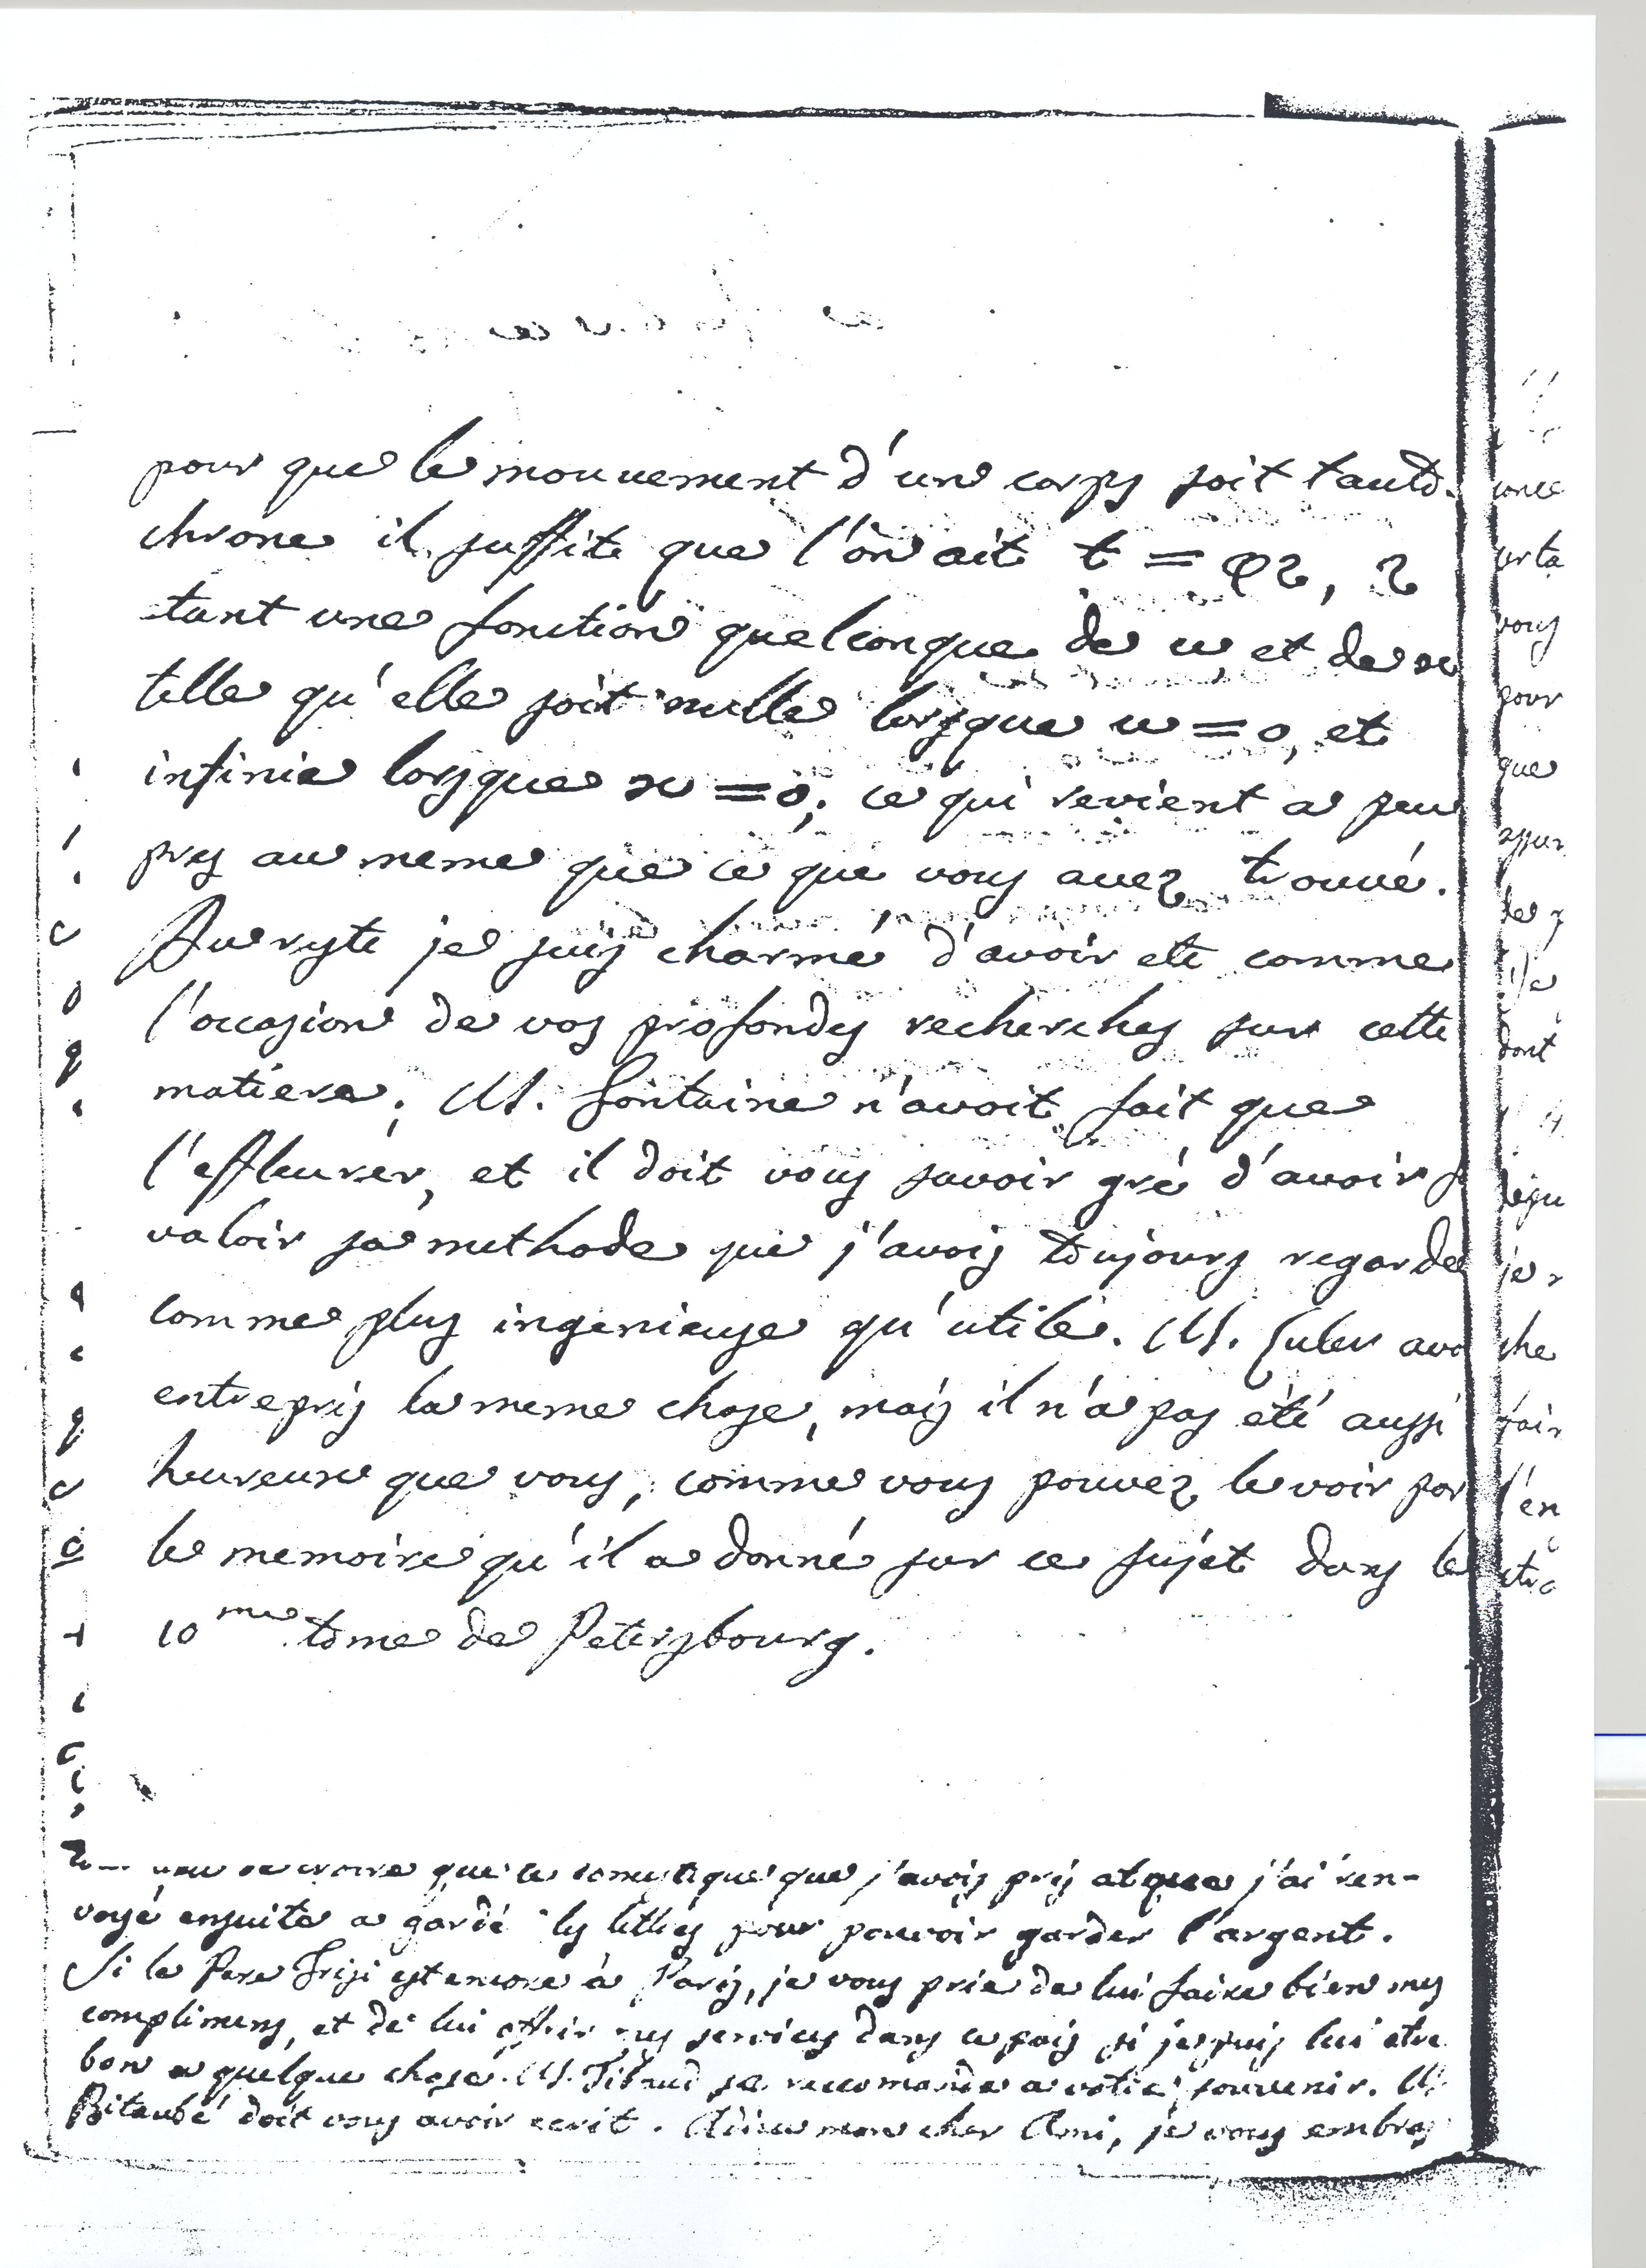 pour que le mouvement d'un corps soit tauto-
chrone il suffite que l'on ait t = φz, z
tant une fonction quelconque de u et de x
telle qu'elle soit nulle lorsque u = 0, et
infinie lorsque x = 0; ce qui revient a peu
pres au meme que ce que vous avez trouvé.
Au reste je suis charmé d'avoir eté comme
l'occasion de vos profondes recherches sur cette
matiere; M. Fontaine n'avoit fait que
l'effleurer, et il doit vous savoir gré d'avoir f
valoir sa methode que j'avois toujours regardé
comme plus ingenieuse qu'utile. M. Euler avo
entrepris la meme chose, mais il n'a pas été aussi
heureux que vous, comme vous pouvez le voir par
le memoire qu'il a donné sur ce sujet dans le
10me tome de Petersbourg.
croire que le domestique que j'avois pris et que j'ai ren-
voyé ensuite a gardé les lettres pour pouvoir garder l'argent.
Si le Pere Frisi est encore à Paris, je vous prie de lui faire bien mes
complimens, et de lui offrir mes services dans ce pais si je puis lui etre
bon a quelque chose. M. se recomande a votre souvenir. M.
Bitaubé doit vous avoir ecrit. Adieu mon cher Ami, je vous embras